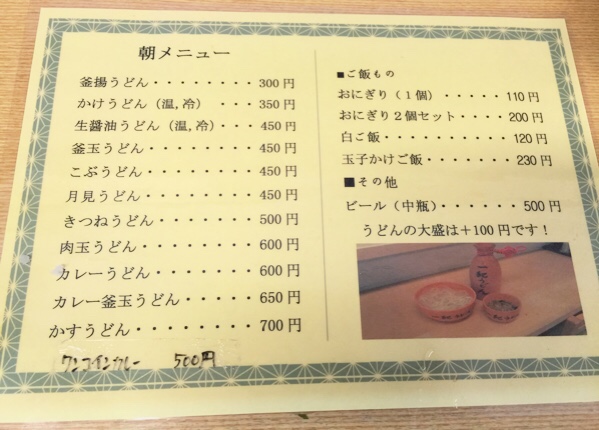 朝メニュー
釜揚うどん・・・・・・・・300円
かけうどん（温,冷）　・・・350円
生醤油うどん（温,冷）・・・450円
釜玉うどん・・・・・・・・450円
こぶうどん・・・・・・・・450円
月見うどん・・・・・・・・450円
きつねうどん・・・・・・・500円
肉玉うどん・・・・・・・・600円
カレーうどん・・・・・・・600円
カレー釜玉うどん・・・・・650円
かすうどん・・・・・・・・700円
ワンコインカレー　500円
■ご飯もの
おにぎり（１個）・・・・・110円
おにぎり２個セット・・・・200円
白ご飯・・・・・・・・・・120円
玉子かけご飯・・・・・・・230円
■その他
ビール（中瓶）・・・・・・500円
うどんの大盛は＋100円です！